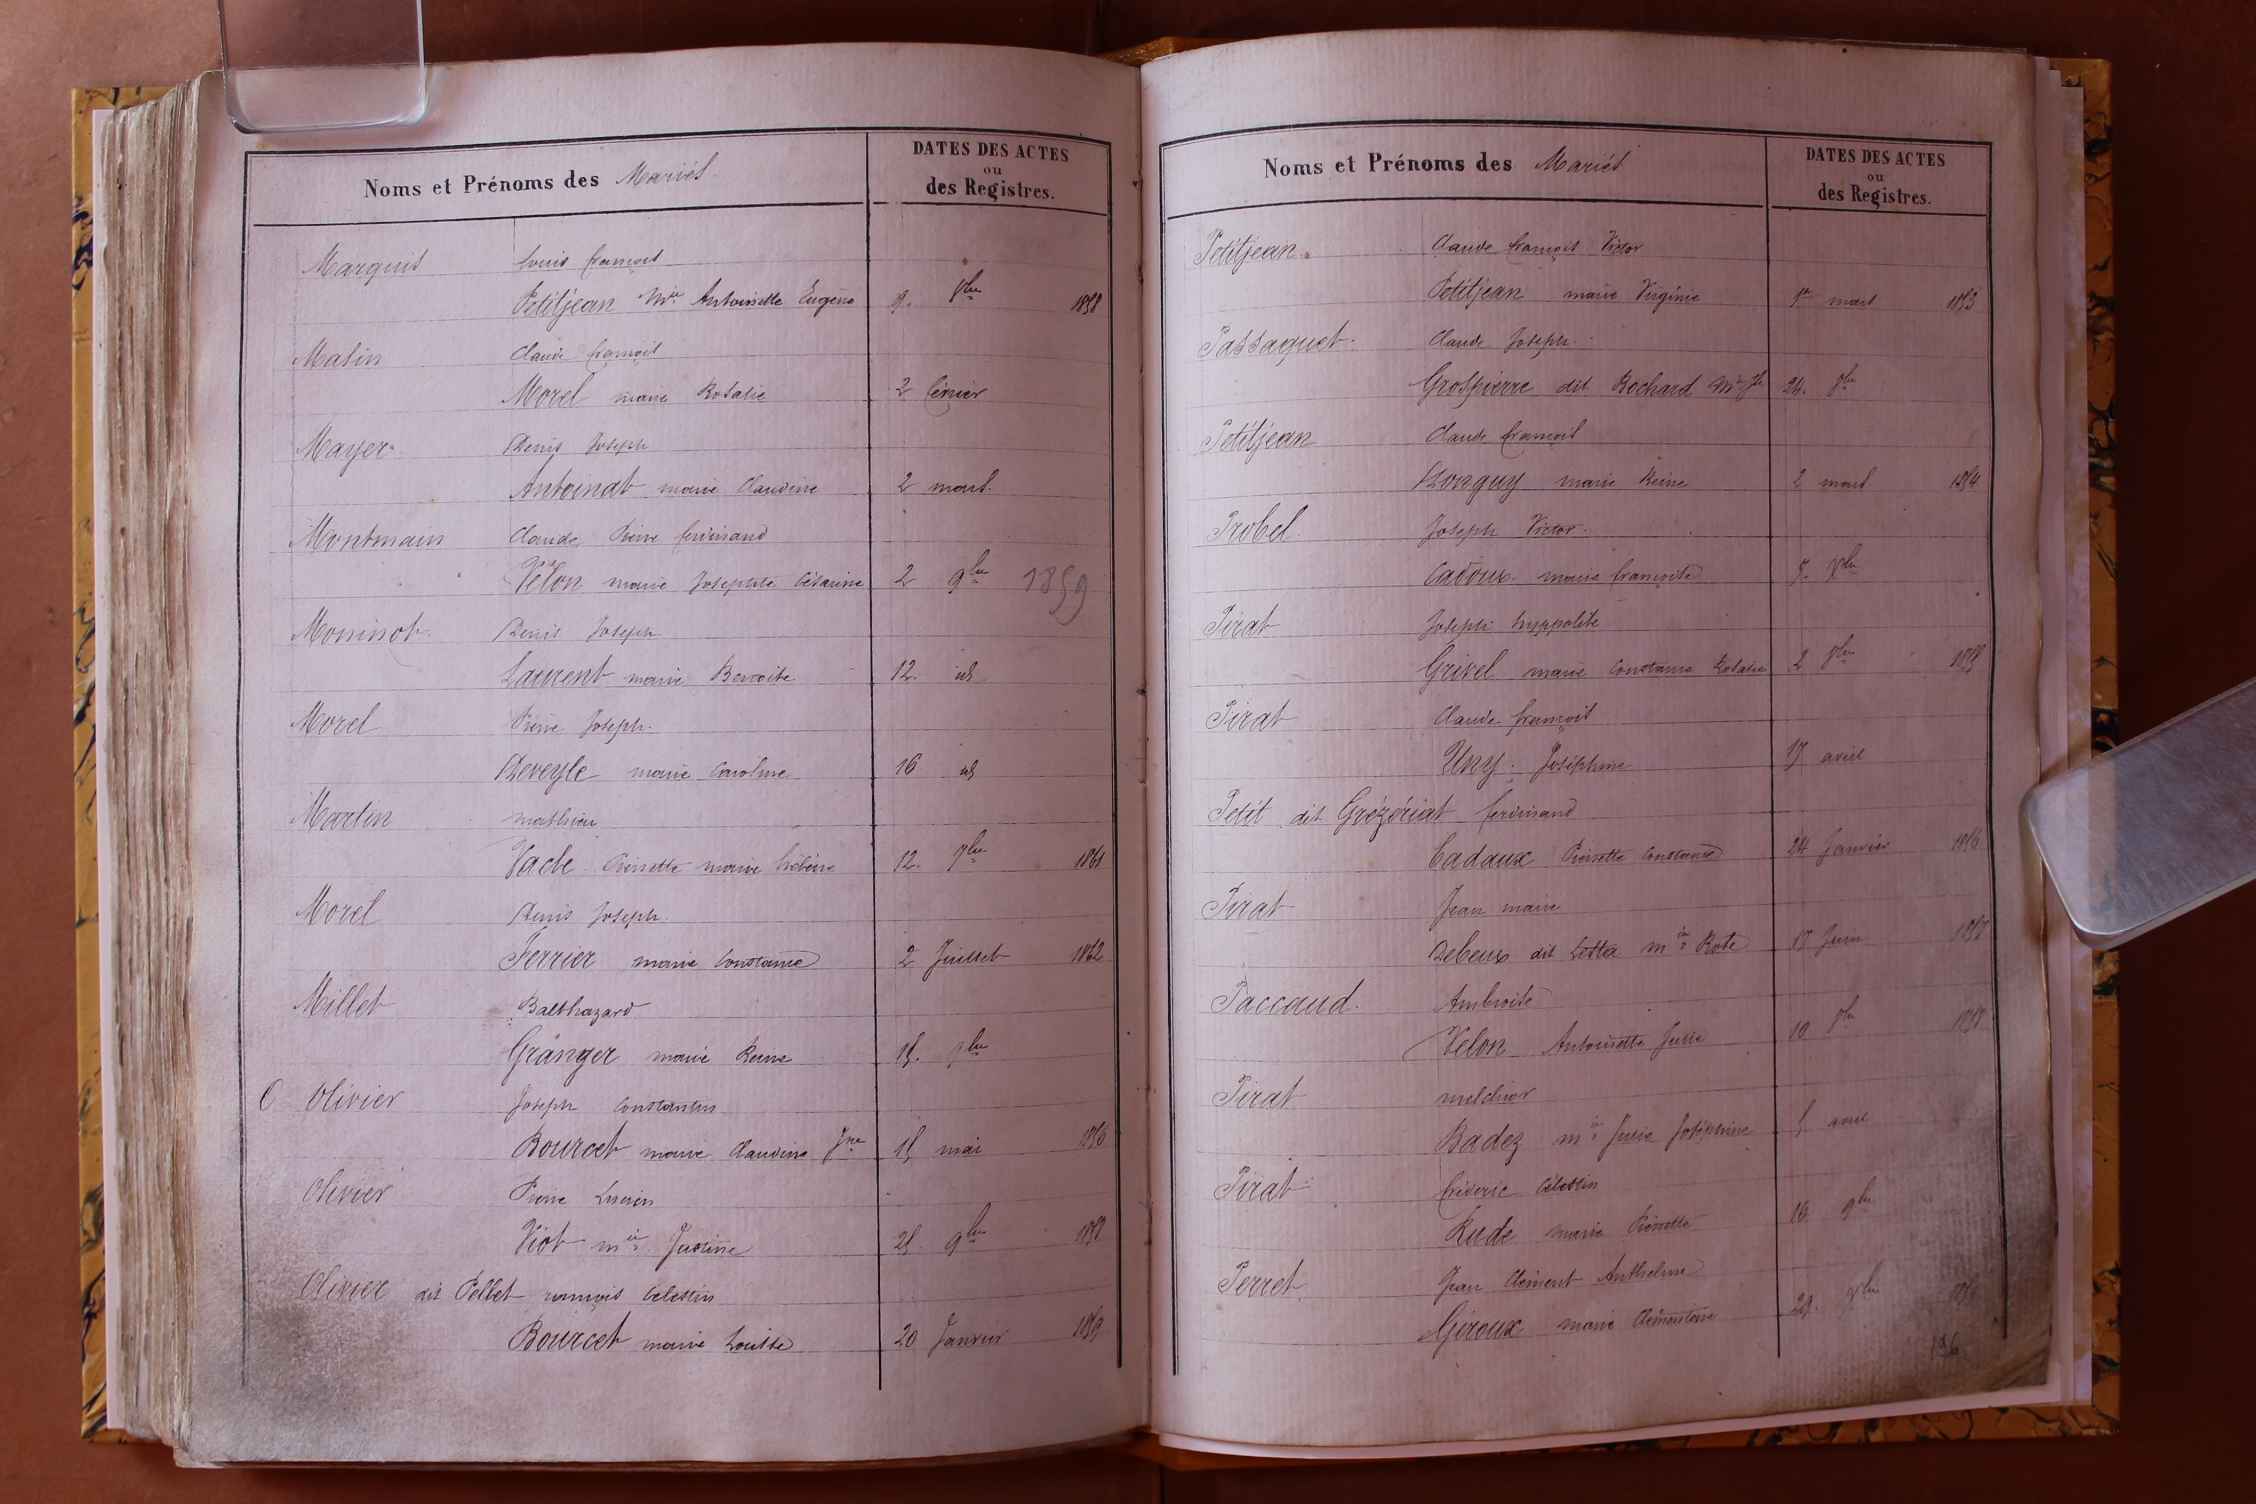 Noms et Prénoms des Mariés
DATES DES ACTES
ou
des Registres.
Marquis Louis françois
Petitjean Mie Antoinette Eugène 9. 1858
Matin Claude françois
Morel marie Rosalie 2 février
Mayer Denis Joseph
Antoinat marie Claudine 2 mars
Montmain Claude Pierre ferdinand
Velon marie Josephte Césarine 2 9bre 1859
Moninot Denis Joseph
Laurent marie Benoite 12. id
Morel Pierre Joseph
Deveyle marie Caroline 16 id
Martin mathieu
Vacle Pierrette marie 12. 1861
Morel Denis Joseph
Ferrier marie Constance 2 Juillet 1862
Millet Balthazard
Granger marie Reine 15.
O Olivier Joseph Constantin
Bourcet marie Claudine Jne 15 mai 1856
Olivier Pierre Lucien
Viot mie Justine 25 9bre 1858
Olivier dit Pellet françois Célestin
Bourcet marie Louise 20 Janvier 1859
Noms et Prénoms des Mariés
DATES DES ACTES
ou
des Registres.
Petitjean Claude françois Victor
Petitjean marie Virginie 1er mars 1853
Passaquet Claude Joseph
Grospierre dit Bochard 24.
Petitjean Claude françois
Longuy marie Reine 2 mars 1854
Probel Joseph Victor
Cadoux marie françoise
Pirat Joseph hyppolite
Grivel marie Constance Rosalie 2 1855
Pirat Claude françois
Uny Joséphine 17 avril
Petit dit Grézériat ferdinand
Cadaux Pierrette Constance 24 Janvier 1856
Pirat Jean marie
Debeux dit mie Rose 17 Juin 1857
Paccaud Ambroise
Velon Antoinette Julie 10 1858
Pirat melchior
Badez mie Julie Joséphine 5 avril
Pirat fréderic Célestin
Rude marie Pierrette 16 9bre
Perret Jean Clément Anthelme
Giroux marie Clémentine 29.
196